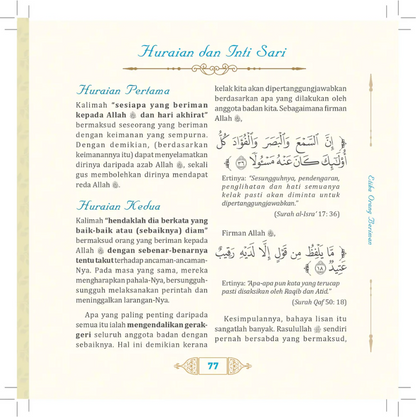 Huraian dan Inti Sari
Huraian Pertama
Kalimah “sesiapa yang beriman
kepada Allah ﷻ dan hari akhirat”
bermaksud seseorang yang beriman
dengan keimanan yang sempurna.
Dengan demikian, (berdasarkan
keimanannya itu) dapat menyelamatkan
dirinya daripada azab Allah ﷻ, sekali
gus membolehkan dirinya mendapat
reda Allah ﷻ.
Huraian Kedua
Kalimah “hendaklah dia berkata yang
baik-baik atau (sebaiknya) diam”
bermaksud orang yang beriman kepada
Allah ﷻ dengan sebenar-benarnya
tentu takut terhadap ancaman-ancaman-
Nya. Pada masa yang sama, mereka
mengharapkan pahala-Nya, bersungguh-
sungguh melaksanakan perintah dan
meninggalkan larangan-Nya.
Apa yang paling penting daripada
semua itu ialah mengendalikan gerak-
geri seluruh anggota badan dengan
sebaiknya. Hal ini demikian kerana
kelak kita akan dipertanggungjawabkan
berdasarkan apa yang dilakukan oleh
anggota badan kita. Sebagaimana firman
Allah ﷻ,
﴿ إِنَّ ٱلسَّمْعَ وَٱلْبَصَرَ وَٱلْفُؤَادَ كُلُّ
أُو۟لَٰٓئِكَ كَانَ عَنْهُ مَسْـُٔولًا ٣٦ ﴾
Ertinya: “Sesungguhnya, pendengaran,
penglihatan dan hati semuanya
kelak pasti akan diminta untuk
dipertanggungjawabkan.”
(Surah al-Isra’ 17: 36)
Firman Allah ﷻ,
﴿ مَّا يَلْفِظُ مِن قَوْلٍ إِلَّا لَدَيْهِ رَقِيبٌ
عَتِيدٌ ١٨ ﴾
Ertinya: “Apa-apa pun kata yang terucap
pasti disaksikan oleh Raqib dan Atid.”
(Surah Qaf 50: 18)
Kesimpulannya, bahaya lisan itu
sangatlah banyak. Rasulullah ﷺ sendiri
pernah bersabda yang bermaksud,
Etika Orang Beriman
77